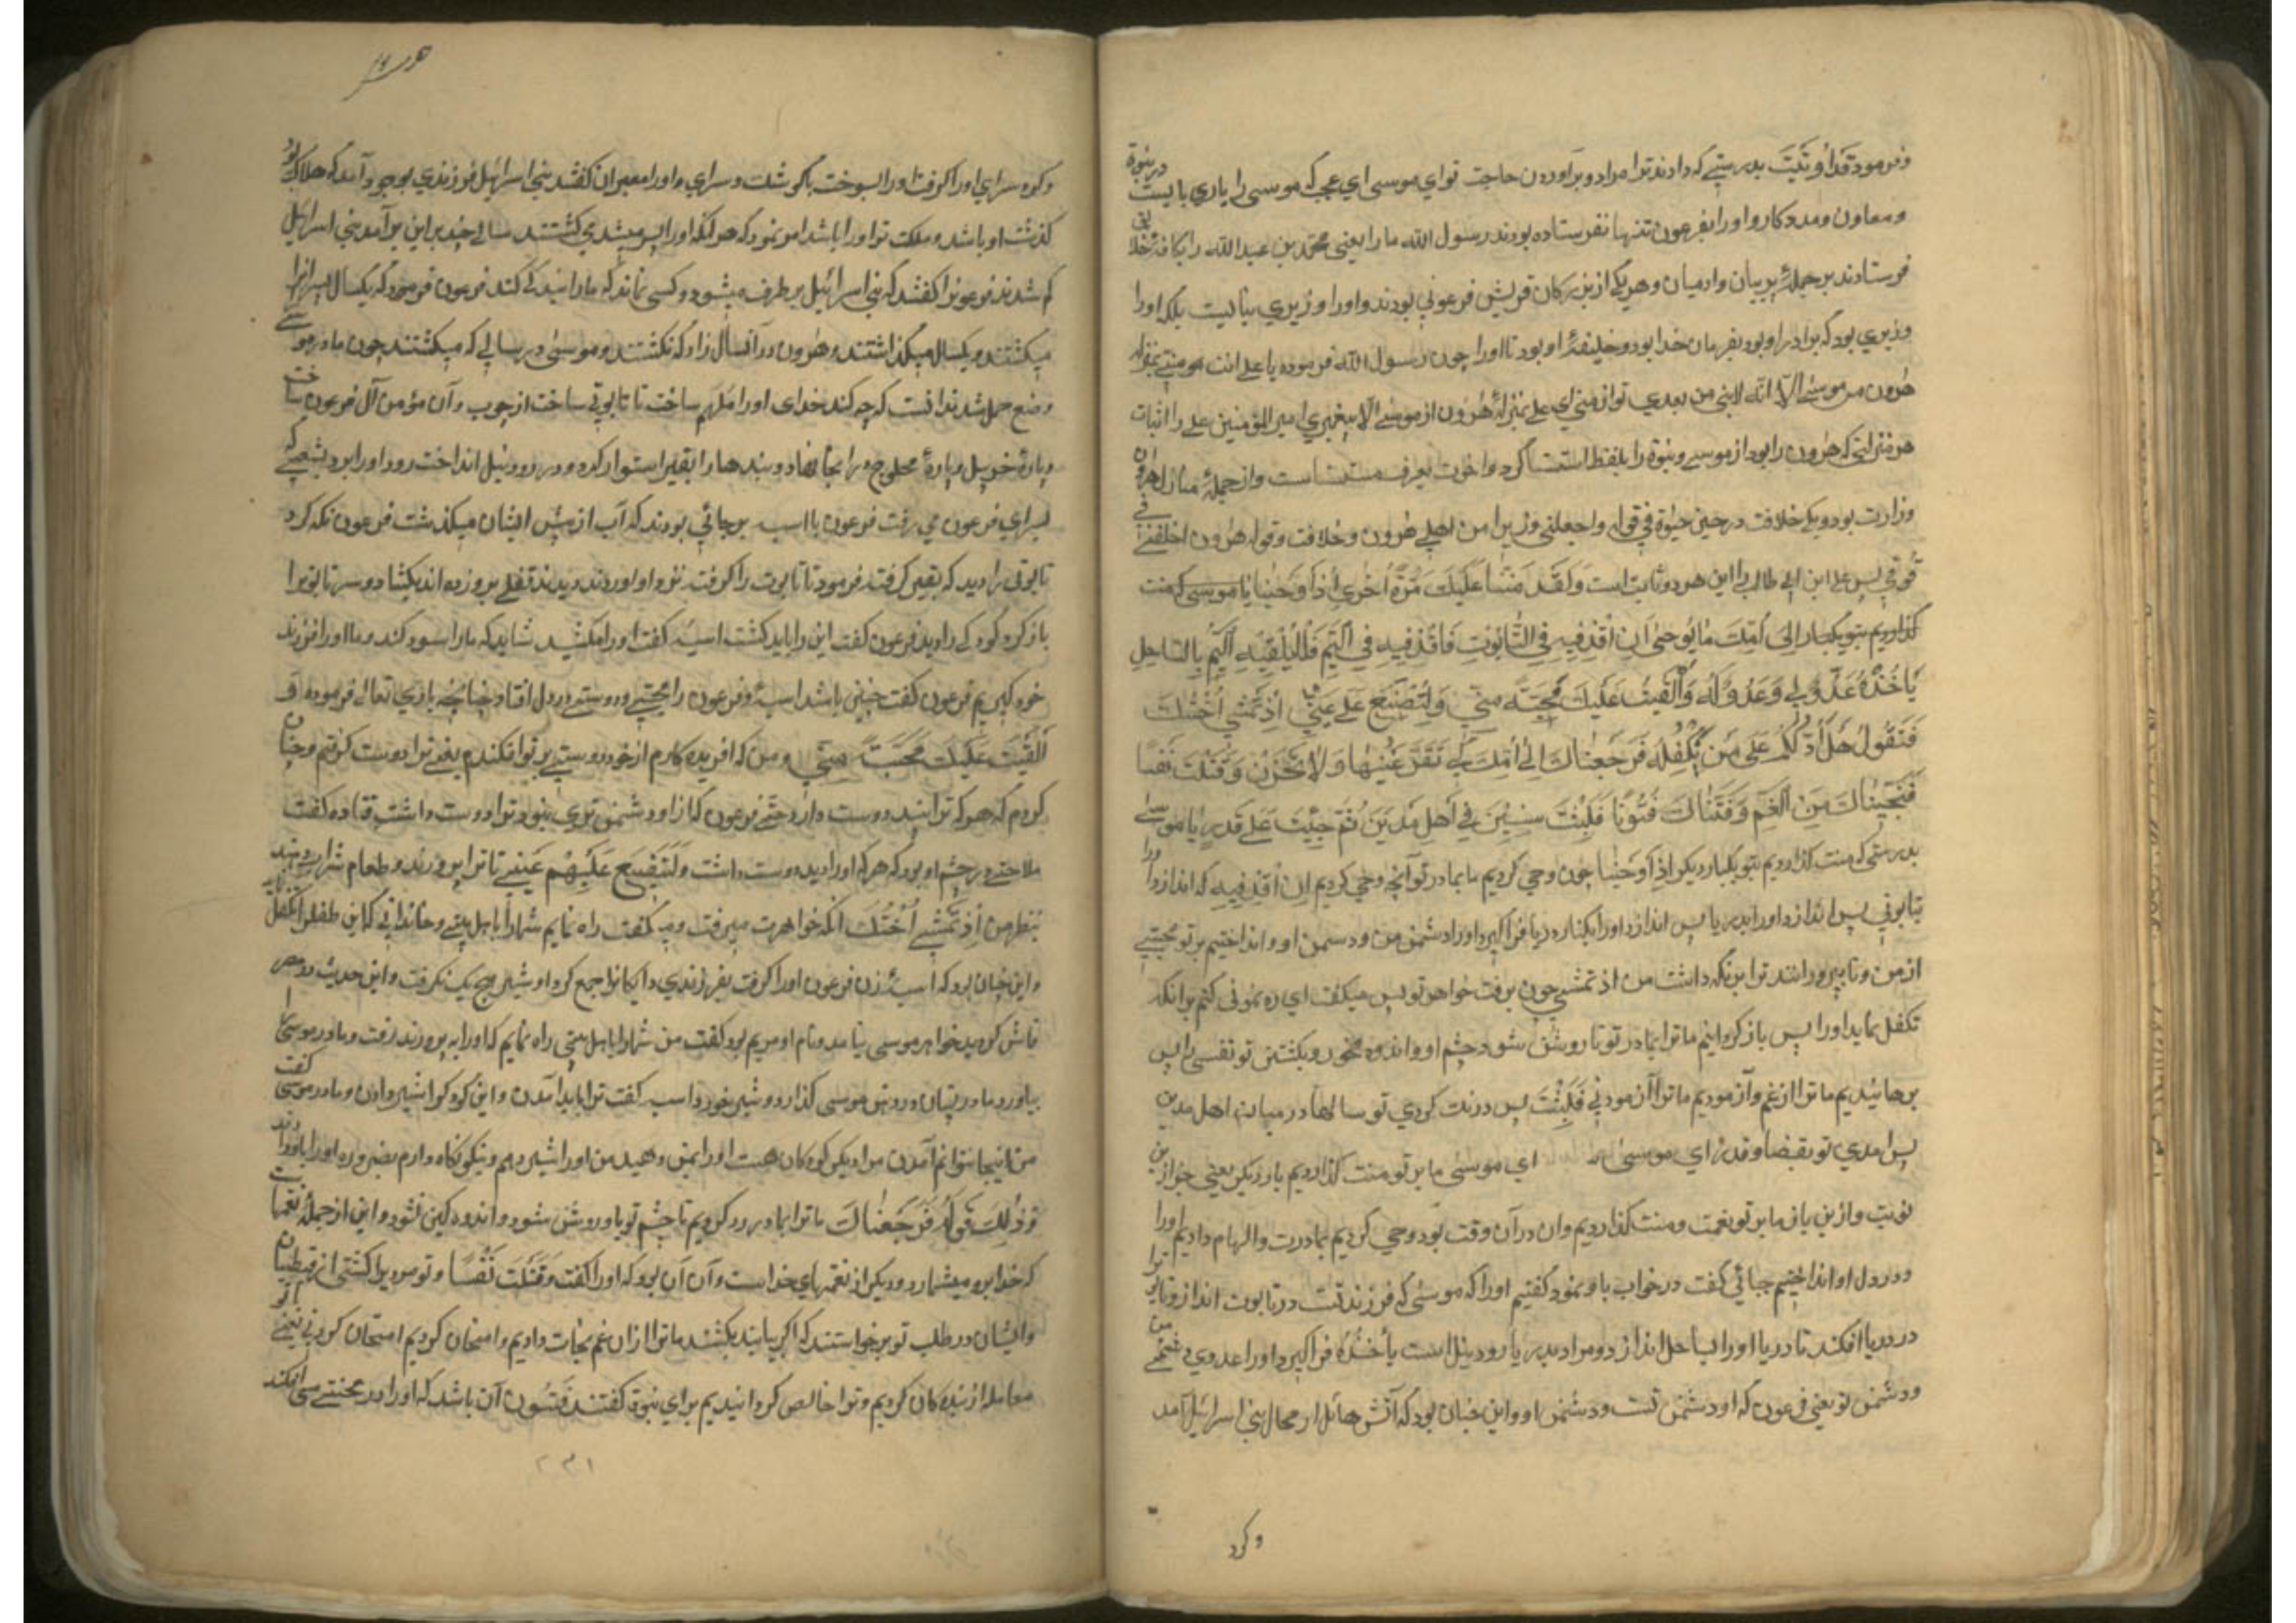 وفرمود قَدْ أُوتَيتَ بدرستی که دادند ترا مراد و برآوردن حاجت تو ای موسی ای عجب که موسی را یاری بایست در نبوة
ومعاون ومددکار واورا بفرعون تنها نفرستاده بودند رسول الله ما را یعنی محمد بن عبد الله را بکافه خلایق
فرستادند بر جمله پریان وادمیان وهریکی ازبزرکان قریش فرعونی بودند واورا وزیری ببایست بلکه اورا
وزیری بود که برادر او بود بفرمان خدا بود وخلیفهٔ او بود تا اورا چون رسول الله فرموده یا علی انت منی بمنزلة
هرون من موسی الّا انّه لا نبی من بعدی تو از منی ای علی بمنزلهٔ هرون از موسی الّا پیغمبری امیر المؤمنین علی را اثبات
هر منزلتی که هرون را بود از موسی ونبوّة را بلفظ استثنا کرد واخوت بعرف مستثناست واز جملهٔ منازل هرون
وزارت بود ویکی خلافت در حین حیوة فی قوله واجعلنی وزیرا من اهلی هرون وخلافت وقوله هرون اخلفنی فی
قومی پس علی ابن ابی طالب را این هردو ثابت است وَلَقَدْ مَنَنَّا عَلَیْكَ مَرَّةً اُخْرَی إِذْ أَوْحَیْنَا یا موسی که منت
کذاردیم بتو یکبار اِلَی اُمِّكَ مَا یُوحَی اَنِ اقْذِفِیهِ فِی التَّابُوتِ فَاقْذِفِیهِ فِی الْیَمِّ فَلْیُلْقِهِ الْیَمُّ بِالسَّاحِلِ
یَأْخُذْهُ عَدُوٌّ لِی وَعَدُوٌّ لَهُ وَاَلْقَیْتُ عَلَیْكَ مَحَبَّةً مِنِّی وَلِتُصْنَعَ عَلَی عَیْنِی اِذْ تَمْشِی اُخْتُكَ
فَتَقُولُ هَلْ أَدُلُّكُمْ عَلَی مَنْ یَكْفُلُهُ فَرَجَعْنَاكَ اِلَی اُمِّكَ كَیْ تَقَرَّ عَیْنُهَا وَلَا تَحْزَنْ وَقَتَلْتَ نَفْسًا
فَنَجَّیْنَاكَ مِنَ الْغَمِّ وَفَتَنَّاكَ فُتُونًا فَلَبِثْتَ سِنِینَ فِی اَهْلِ مَدْیَنَ ثُمَّ جِئْتَ عَلَی قَدَرٍ یَا مُوسَی
بدرستی که منت کذاردیم بتو یکبار دیکر اِذْ اَوْحَیْنَا چون وحی کردیم ما بمادر تو آنچه وحی کردیم اَنِ اقْذِفِیهِ که انداز اورا
بتابوتی پس انداز اورا بدریا پس اندازد اورا بکناره دریا فراکیرد اورا دشمن من ودشمن او وانداختیم بر تو محبتی
از من وتا بپرورانند ترا برنکه داشت من اذ تمشی چون برفت خواهر تو پس میکفت ای ره نمونی کنم برانکه
تکفل نماید اورا پس باز کردانیم ما ترا بمادر تو تا روشن شود چشم او واندوه نخورد وبکشتی تو نفسی را پس
برهانیدیم ما ترا از غم وآزمودیم ما ترا آزمودنی فَلَبِثْتَ پس درنك کردی تو سالها در میان اهل مدین
پس امدی تو بقضا وقدر ای موسی ای موسی ما بر تو منت کذاردیم بار دیکر یعنی جز ازین
نوبت واز پن باز ما بر تو نعمت ومنت کذاردیم وان در آن وقت بود وحی کردیم بمادرت والهام دادیم اورا
ودر دل او انداختیم جبائی کفت در خواب باو نمود کفتیم اورا که موسی که فرزند تست در تابوت انداز وتابوترا
در دریا افکند تا دریا اورا بساحل اندازد ومراد بدریا رود نیل است یَأْخُذْهُ فراکیرد اورا عدوی دشمن من
ودشمن تو یعنی فرعون که او دشمن تست ودشمن او واین چنان بود که آتش هائل از محال بنی اسرائیل آمد
وکرد
وکوه سرای اورا کرفت واورا بسوخت باکوشك وسرای واورا معبران کفتند بنی اسرائیل فرزندی بوجود آمد که هلاك تو
کذشت او باشد وملکت ترا اورا باشد امر نمود که هر آنکه اورا پسر میشد می کشتند سالی چند بر این برآمد بنی اسرائیل
کم شدند فرعونرا کفتند که بنی اسرائیل بر طرف میشود وکسی نماند که ما را بندکی کند فرعون فرمود که یکسال پسرانرا
میکشتند ویکسال میکذاشتند وهرون در آنسال زاد که نکشتند وموسی در سالی که میکشتند چون مادر موسی
وضع حمل شد ندانست که چه کند خدای اورا مُلْهَم ساخت تا تابوتی ساخت از چوب وآن مؤمن آل فرعون ساخت
وپارهٔ محلوج در انجا نهاد وبندها را بقیر استوار کرد ودر رود نیل انداخت رود اورا برد بشعبه که
بسرای فرعون می رفت فرعون با اسیه بر جائی بودند که آب از پیش ایشان میکذشت فرعون نکه کرد
تابوتی را دید که بقیر کرفته فرمود تا تابوت را کرفته نزد او اوردند دیدند قفلی برو زده اند بکشاد وسر تابوترا
باز کرد کودکی را دید فرعون کفت این را باید کشت اسیه کفت اورا مکشید شاید که ما را سود کند ویا اورا فرزند
خود کیریم فرعون کفت چنین باشد اسیه وفرعون را محبتی ودوستی در دل افتاد چنانچه باری تعالی فرموده وَ
اَلْقَیْتُ عَلَیْكَ مَحَبَّةً مِنِّی ومن که افریده کارم از خود دوستی بر تو افکندم یعنی ترا دوست کرفتم وچنان
کردم که هرکه ترا بیند دوست دارد حتی فرعون که از او دشمن تری نبود ترا دوست داشت قتاده کفت
ملاحتی در چشم او بود که هرکه اورا دیدی دوست داشت وَلِتُصْنَعَ عَلَی عَیْنِی تا ترا پرورند وطعام شراب دهند
بنظر من اِذْ تَمْشِی اُخْتُكَ انکه خواهرت میرفت ومیکفت راه نمایم شما را باهل بیتی وخاندانی که این طفل را تکفل نماید
واین چنان بود که اسیه زن فرعون اورا کرفت بفرزندی دایکانرا جمع کرد او شیر هیچ یك نکرفت واین حدیث در مصر
فاش کردید خواهر موسی بیامد ونام او مریم بود کفت من شما را باهل بیتی راه نمایم که اورا بپرورند رفت ومادر موسی را
بیاورد مادر پستان در دهن موسی کذارد وشیر بخورد اسیه کفت ترا باید آمدن واین کودك را شیر دادن ومادر موسی کفت
من اینجا نتوانم آمدن مرا دیکر کودکان هست اورا بمن دهید من اورا شیر دهم ونیکو نکاه دارم بضروره اورا باو دادند
وَذَلِكَ قوله فَرَجَعْنَاكَ ما ترا بمادر رد کردیم تا چشم تو باو روشن شود واندوهکین نشود واین از جملهٔ نعمتهاست
که خدا برو میشمارد ودیکر از نعمتهای خداست وآن آن بود که اورا کفت وَقَتَلْتَ نَفْسًا وتو مردیرا کشتی از قبطیان
وایشان در طلب تو برخواستند که اکر بیابند بکشند ما ترا از ان غم نجات دادیم وامتحان کردیم امتحان کردنی یعنی
معامله ازمنده کان کردیم وترا خالص کردانیدیم برای نبوة کفتند فتون آن باشد که اورا در محنتی می افکند
۲۳۱